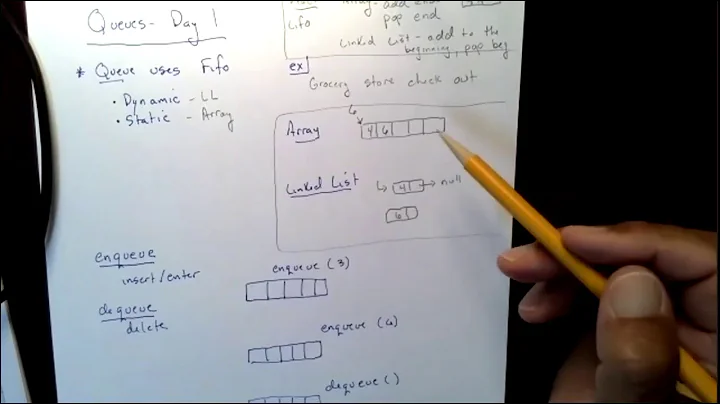 Queues - Day 1
* Queue uses Fifo
• Dynamic - LL
• Static - Array
enqueue
insert/enter
dequeue
delete
Lifo
Array - add end
pop end
Linked List - add to the
beginning, pop beg
ex
Grocery store check out
6
Array
4 6
Linked List
L → 4 → null
6
enqueue (3)
enqueue (6)
dequeue ()